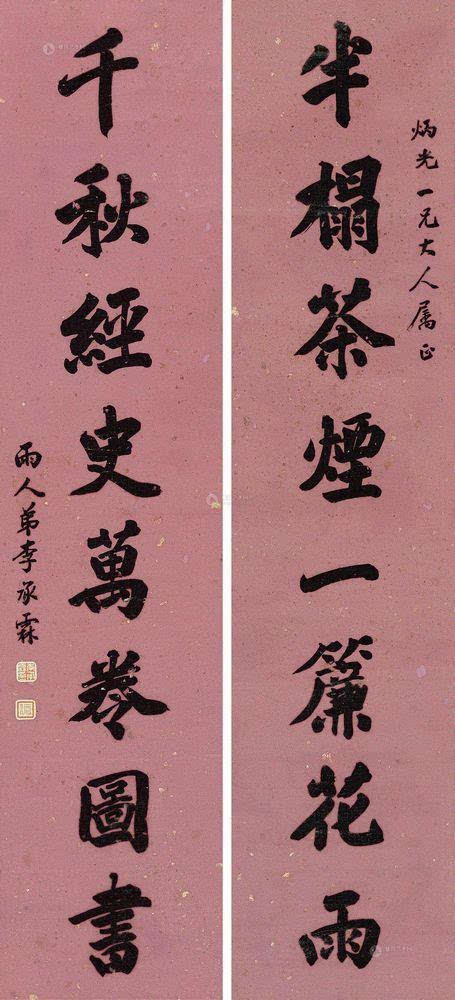 炳光一兄大人屬正
半榻茶煙一簾花雨
千秋經史萬卷圖書
雨人弟李承霖